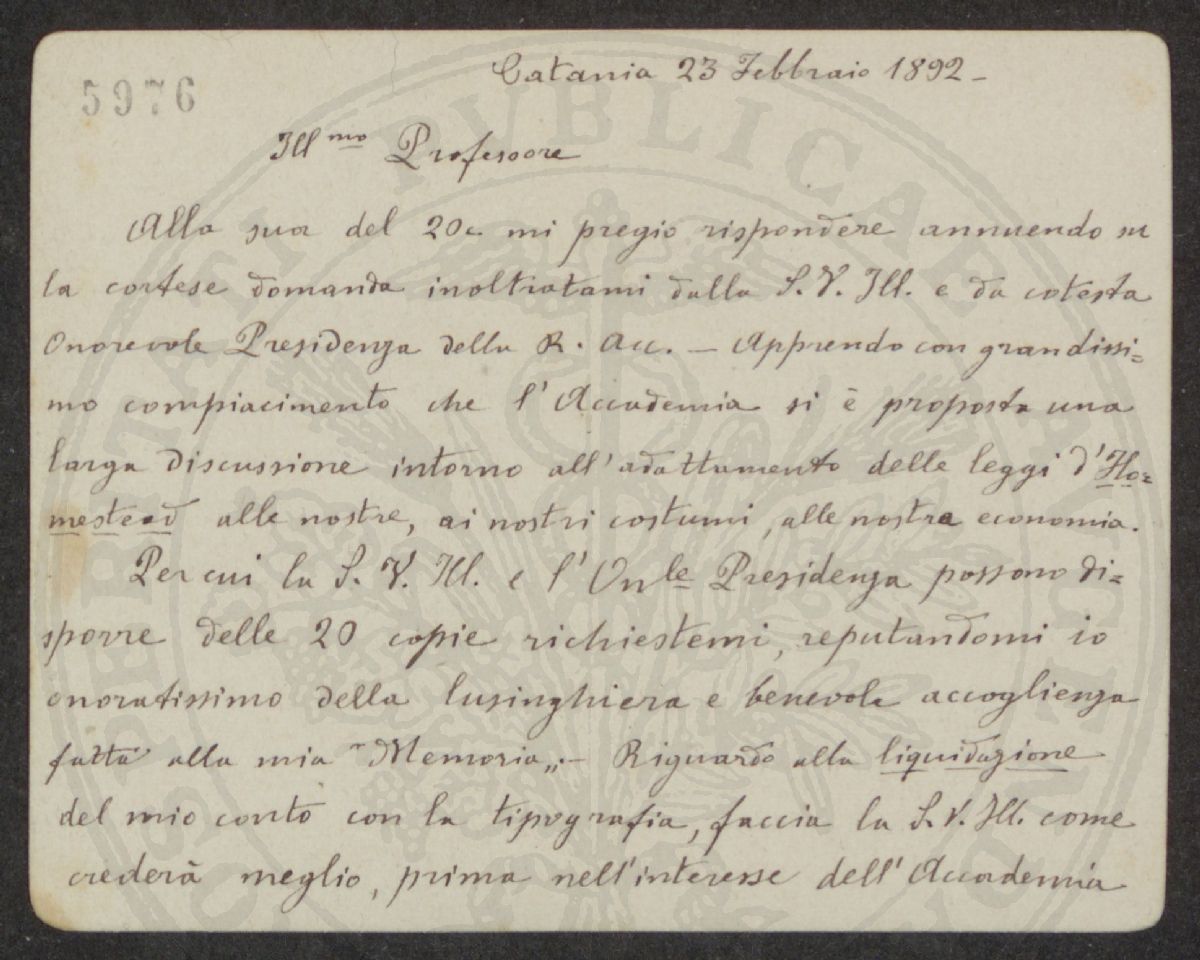 Catania 23 Febbraio 1892 -
5976
Ill.mo Professore
Alla sua del 20 c. mi pregio rispondere annuendo su
la cortese domanda inoltratami dalla S. V. Ill. e da cotesta
Onorevole Presidenza della R. Acc. — Apprendo con grandissi=
mo compiacimento che l'Accademia si è proposta una
larga discussione intorno all'adattamento delle leggi d'Ho=
mestead alle nostre, ai nostri costumi, alle nostra economia.
Per cui la S. V. Ill. e l'On.le Presidenza possono di=
sporre delle 20 copie richiestemi, reputandomi io
onoratissimo della lusinghiera e benevola accoglienza
fatta alla mia "Memoria„ - Riguardo alla liquidazione
del mio conto con la tipografia, faccia la S. V. Ill. come
crederà meglio, prima nell'interesse dell'Accademia